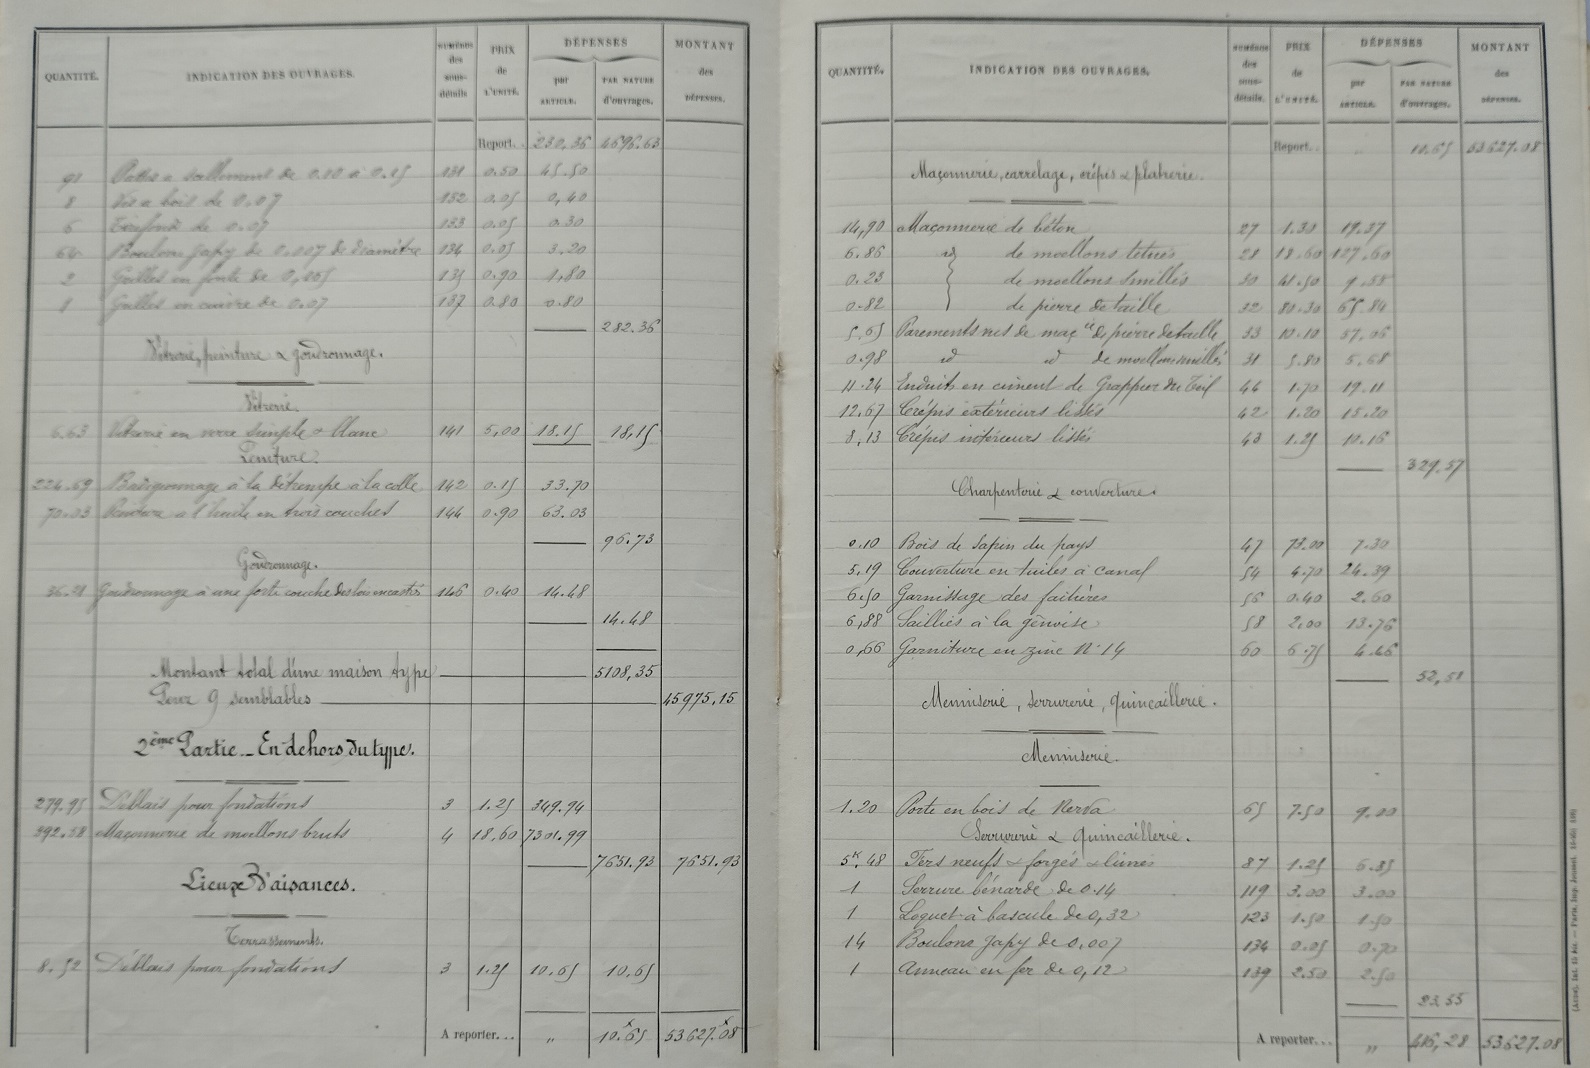 QUANTITÉ. INDICATION DES OUVRAGES. NUMÉROS des sous-détails PRIX de L'UNITÉ. DÉPENSES par ARTICLE. PAR NATURE d'ouvrages. MONTANT des DÉPENSES.
Report. . 230.36 4696.63
91 Pattes a scellement de 0.10 a 0.15 131 0.50 45.50
8 Vis a bois de 0.07 132 0.05 0,40
6 Tirefond de 0.07 133 0.05 0.30
64 Boulons Japy de 0.007 de diamètre 134 0.05 3.20
2 Grilles en fonte de 0,105 135 0.90 1,80
1 Grilles en cuivre de 0.07 137 0.80 0.80
282.36
Vitrerie, peinture & goudronnage.
Vitrerie.
6.63 Vitrerie en verre simple & blanc 141 5,00 18.15 18,15
Peinture.
224.69 Badigeonnage à la détrempe à la colle 142 0.15 33.70
70.03 Peinture à l'huile en trois couches 144 0.90 63.03
96.73
Goudronnage.
36.21 Goudronnage à une forte couche des bois encastrés 146 0.40 14.48
14.48
Montant total d'une maison type 5108,35
Pour 9 semblables 45975,15
2ème Partie _ En dehors du type.
279.95 Déblais pour fondations 3 1.25 349.94
392.58 Maçonnerie de moellons bruts 4 18,60 7301.99
7651.93 7651.93
Lieux d'aisances.
Terrassements.
8.52 Déblais pour fondations 3 1.25 10.65 10.65
A reporter... " 10.65 53627.08
QUANTITÉ. INDICATION DES OUVRAGES. NUMÉROS des sous-détails. PRIX de L'UNITÉ. DÉPENSES par ARTICLE. PAR NATURE d'ouvrages. MONTANT des DÉPENSES.
Report. . " 10.65 53627.08
Maçonnerie, carrelage, crépis & platrerie.
14,90 Maçonnerie de béton 27 1.30 19.37
6.86 id de moellons tetués 28 18.60 127.60
0.23 de moellons smillés 30 41.50 9.55
0.82 de pierre de taille 32 80.30 65.84
5.65 Parements nus de maçie de pierre de taille 33 10.10 57.06
0.98 id id de moellons smillés 31 5.80 5.68
11.24 Enduit en ciment de Grappier du Teil 44 1.70 19.11
12.67 Crépis extérieurs lissés 42 1.20 15.20
8,13 Crépis intérieurs lissés 43 1.25 10.16
329.57
Charpenterie & couverture.
0.10 Bois de sapin du pays 47 73.00 7.30
5.19 Couverture en tuiles à canal 54 4.70 24.39
6.50 Garnissage des faitières 56 0.40 2.60
6,88 Saillies à la génoise 58 2.00 13.76
0,66 Garniture en zinc N° 14 60 6.75 4.46
52,51
Menuiserie, serrurerie, quincaillerie.
Menuiserie.
1.20 Porte en bois de Nerva 65 7.50 9.00
Serrurerie & quincaillerie.
5k.48 Fers neufs & forgés & limés 87 1.25 6.85
1 Serrure bénarde de 0.14 119 3.00 3.00
1 Loquet à bascule de 0,32 123 1.50 1.50
14 Boulons Japy de 0.007 134 0.05 0.70
1 Anneau en fer de 0,12 139 2.50 2.50
23.55
A reporter... " 416,28 53627.08